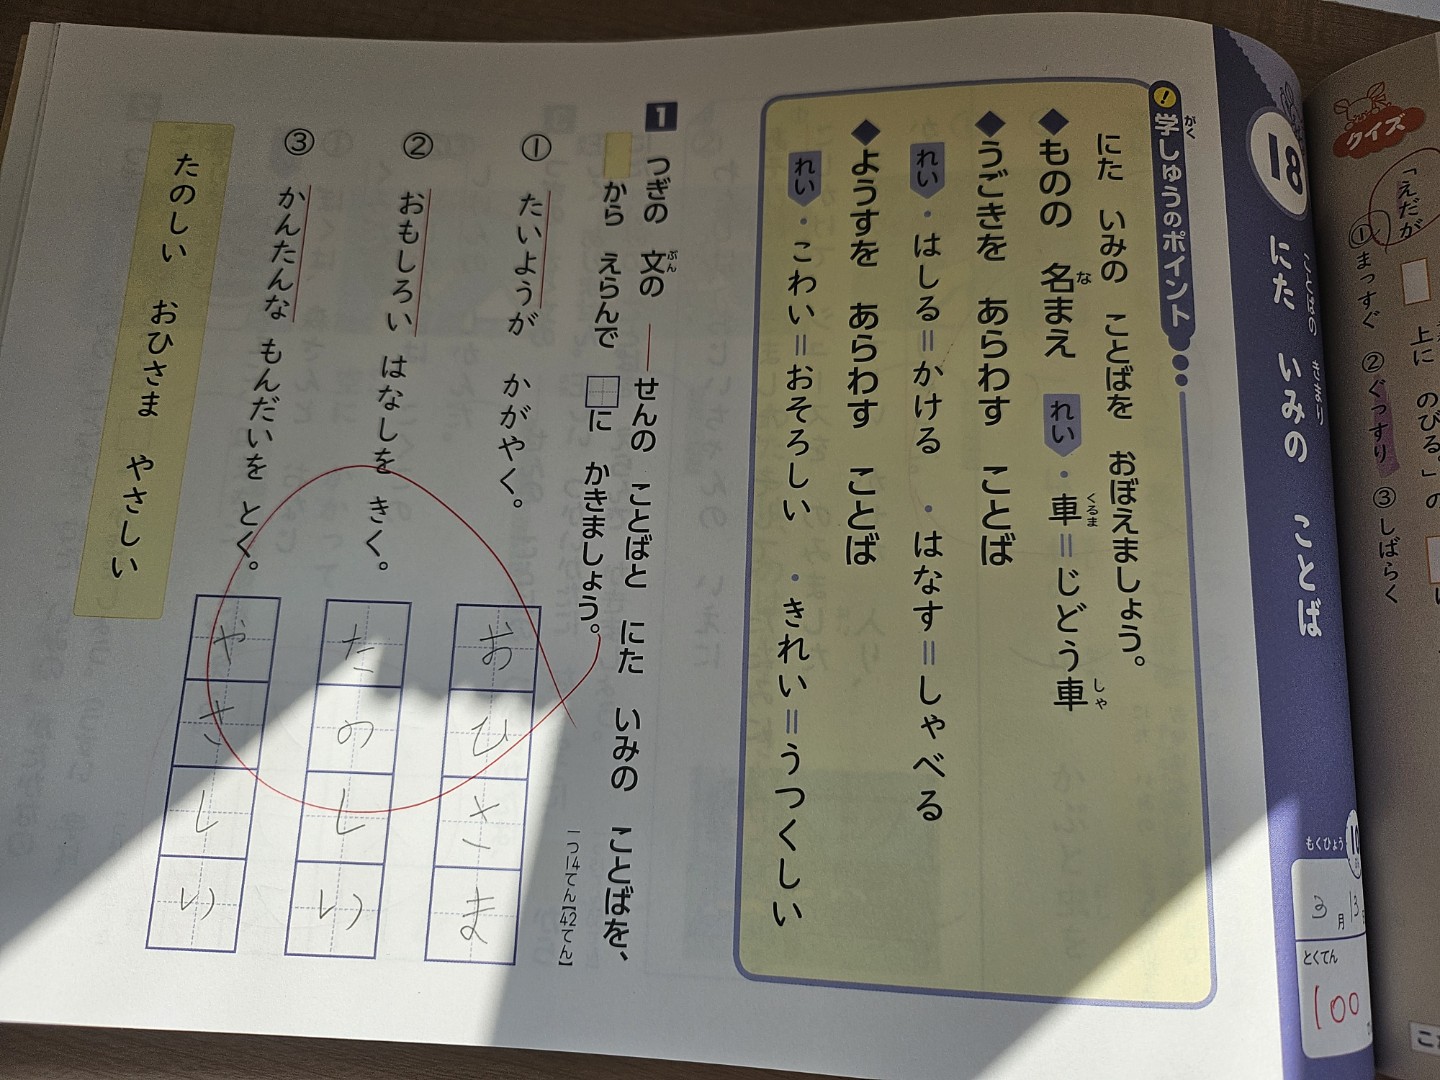 18
にた いみの ことば
ことばの きまり
もくひょう
10
3月13
とくてん
100
! 学しゅうのポイント
がく
にた いみの ことばを おぼえましょう。
◆ものの 名まえ れい ・車=じどう車
な くるま しゃ
◆うごきを あらわす ことば
れい ・はしる=かける ・はなす=しゃべる
◆ようすを あらわす ことば
れい ・こわい=おそろしい ・きれい=うつくしい
1 つぎの 文の ―せんの ことばと にた いみの ことばを、
ぶん
から えらんで □に かきましょう。
一つ14てん【42てん】
① たいようが かがやく。
おひさま
② おもしろい はなしを きく。
たのしい
③ かんたんな もんだいを とく。
やさしい
たのしい おひさま やさしい
クイズ
「えだが □ 上に のびる。」の
①まっすぐ ②ぐっすり ③しばらく